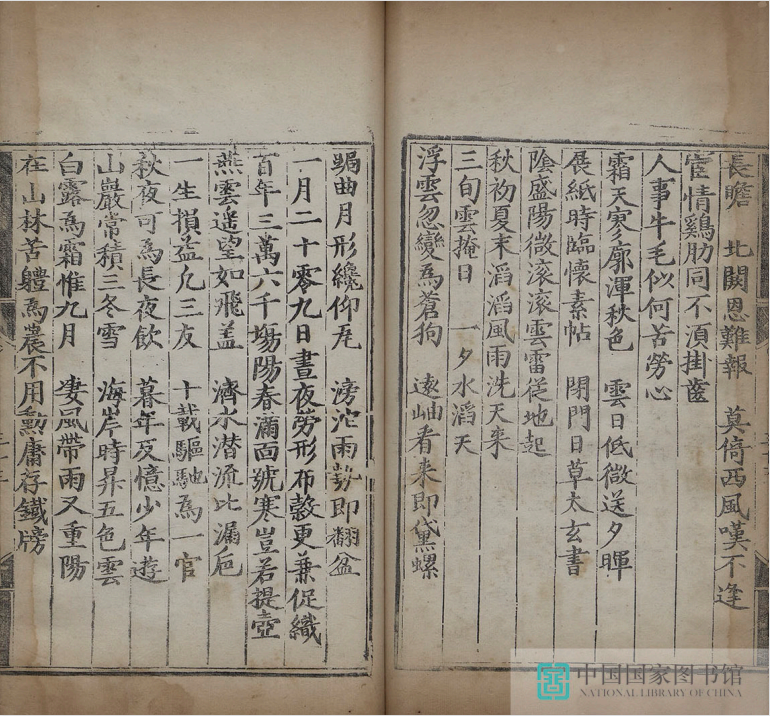 長瞻　北闕恩難報　莫倚西風嘆不逢
宦情鷄肋同不須掛齒
人事牛毛似何苦勞心
霜天寥廓渾秋色　雲日低微送夕暉
展紙時臨懷素帖　閉門日草太玄書
陰盛陽微滚滚雲雷從地起
秋初夏末滔滔風雨洗天來
三旬雲掩日　一夕水滔天
浮雲忽變為蒼狗　遠岫看来即黛螺
跼曲月形纔仰𠂆　滂沱雨勢即翻盆
一月二十零九日晝夜勞形布穀更兼促織
百年三萬六千塲陽春滿面號寒豈若提壺
燕雲遥望如飛盖　濟水潜流比漏卮
一生損益凢三友　十載驅馳為一官
秋夜可為長夜飲　暮年反憶少年遊
山巖常積三冬雪　海岸時昇五色雲
白露為霜惟九月　凄風帶雨又重陽
在山林苦軆為農不用勲庸存鐵牓
中国国家图书馆
NATIONAL LIBRARY OF CHINA